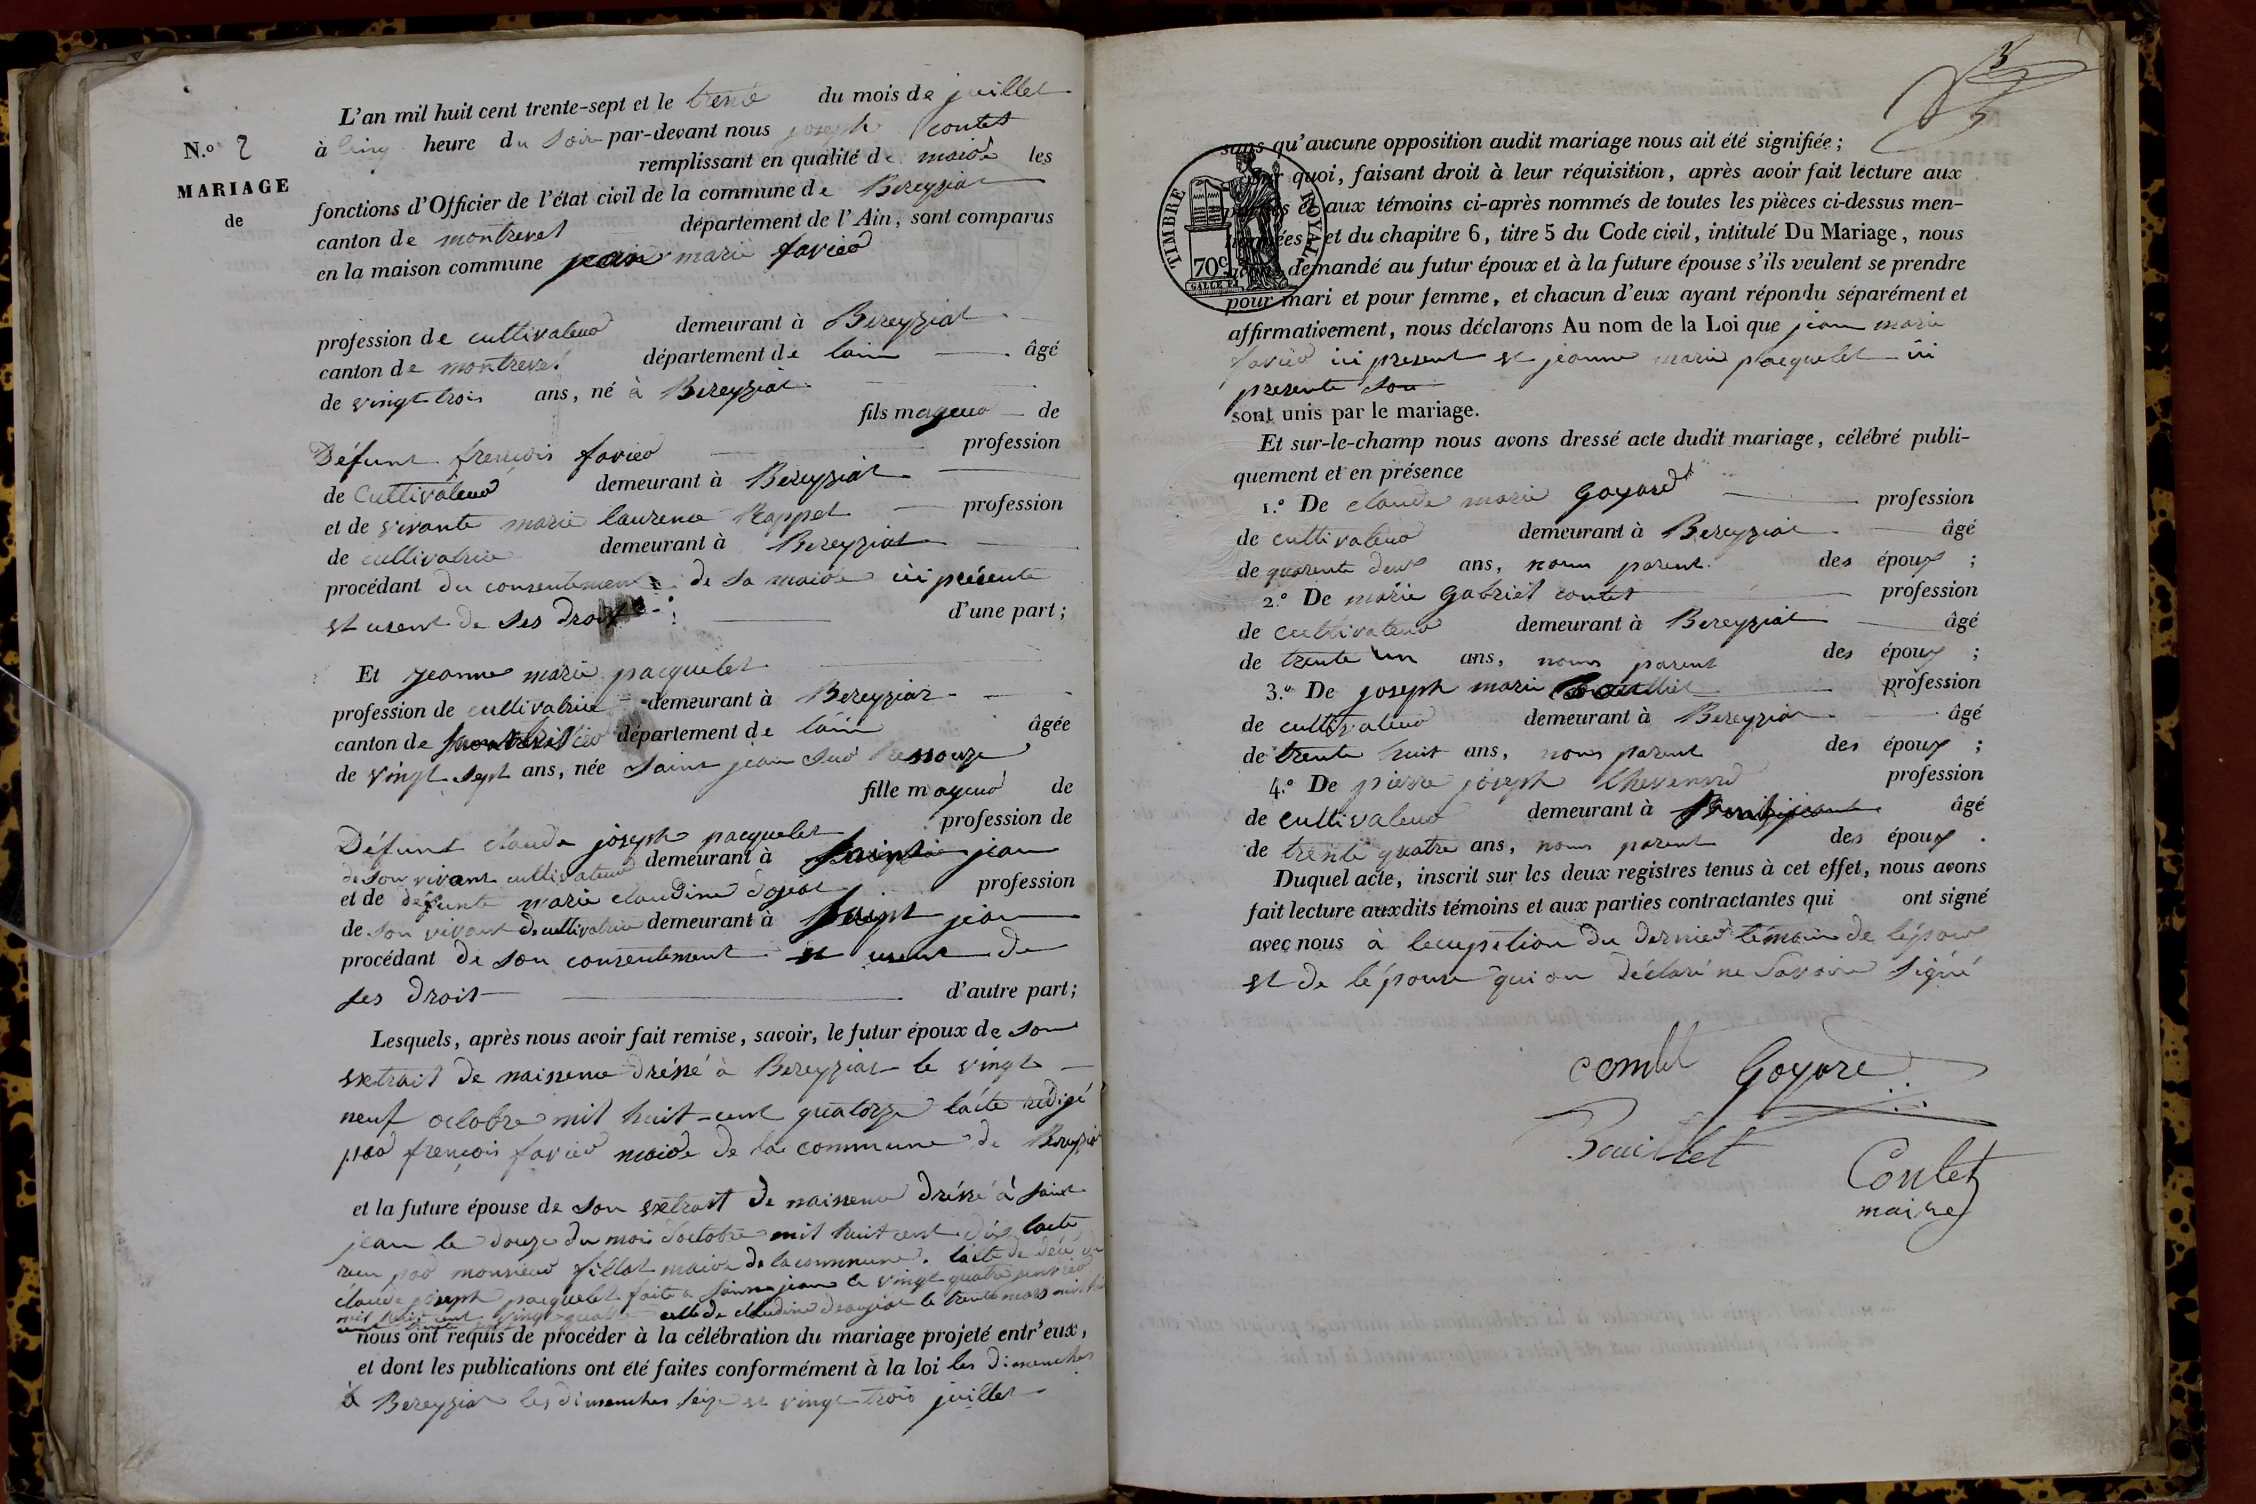 N.o 2
MARIAGE
de
L'an mil huit cent trente-sept et le trente du mois de juillet
à cinq heure du soir par-devant nous joseph contet
remplissant en qualité de maire les
fonctions d'Officier de l'état civil de la commune de Bereyziat
canton de montrevel département de l'Ain, sont comparus
en la maison commune jean marie favier
profession de cultivateur demeurant à Bereyziat
canton de montrevel département de lain âgé
de vingt trois ans, né à Bereyziat
fils mageur de
Défunt françois favier profession
de Cultivateur demeurant à Bereyziat
et de vivante marie laurence Rappet profession
de cultivatrice demeurant à Bereyziat
procédant du consentement de sa maire ici présente
et usent de ses droit d'une part;
Et jeanne marie pacquelet
profession de cultivatrice demeurant à Bereyziat
canton de département de lain âgée
de vingt sept ans, née saint jean sur Ressouze
fille mageur de
Défunt claude joseph pacquelet profession de
de son vivant cultivateur demeurant à saint jean
et de défunte marie claudine profession
de son vivant de cultivatrice demeurant à saint jean
procédant de son consentement et usent de
ses droit d'autre part;
Lesquels, après nous avoir fait remise, savoir, le futur époux de son
extrait de naissence dréssé à Bereyziat le vingt
neuf octobre mil huit-cent quatorze lacte redigé
par françois favier maire de la commune de Bereyziat
et la future épouse de son extrait de naissence dréssé à saint
jean le douze du mois d'octobre mil huit cent dix lacte
recu par monsieur fillat maire de la commune. lacte de décé de
claude joseph pacquelet faite a saint jean le vingt quatre janvier
mil huit cent vingt quatre celle de claudine le trente mars mil huit
cent trente
nous ont requis de procéder à la célébration du mariage projeté entr'eux,
et dont les publications ont été faites conformément à la loi les dimenches
à Bereyziat les dimenches seize et vingt trois juillet
3
TIMBRE ROYAL
70c
sans qu'aucune opposition audit mariage nous ait été signifiée;
Sur quoi, faisant droit à leur réquisition, après avoir fait lecture aux
parties et aux témoins ci-après nommés de toutes les pièces ci-dessus men-
tionnées et du chapitre 6, titre 5 du Code civil, intitulé Du Mariage, nous
avons demandé au futur époux et à la future épouse s'ils veulent se prendre
pour mari et pour femme, et chacun d'eux ayant répondu séparément et
affirmativement, nous déclarons Au nom de la Loi que jean marie
favier ici present et jeanne marie pacquelet ici
presente son
sont unis par le mariage.
Et sur-le-champ nous avons dressé acte dudit mariage, célébré publi-
quement et en présence
1.o De claude marie Goyard profession
de cultivateur demeurant à Bereyziat âgé
de quarente deux ans, noun parent des époux ;
2.o De marie Gabriel contet profession
de cultivateur demeurant à Bereyziat âgé
de trente un ans, noun parent des époux ;
3.o De joseph marie Bouillet profession
de cultivateur demeurant à Bereyziat âgé
de trente huit ans, noun parent des époux ;
4.o De pierre joseph Chevenard profession
de cultivateur demeurant à âgé
de trente quatre ans, noun parent des époux .
Duquel acte, inscrit sur les deux registres tenus à cet effet, nous avons
fait lecture auxdits témoins et aux parties contractantes qui ont signé
avec nous à lecuption du dernier témoin de l'époux
et de l'épouse qui on déclaré ne Savoire signé
contet Goyard
Bouillet
Contet
maire